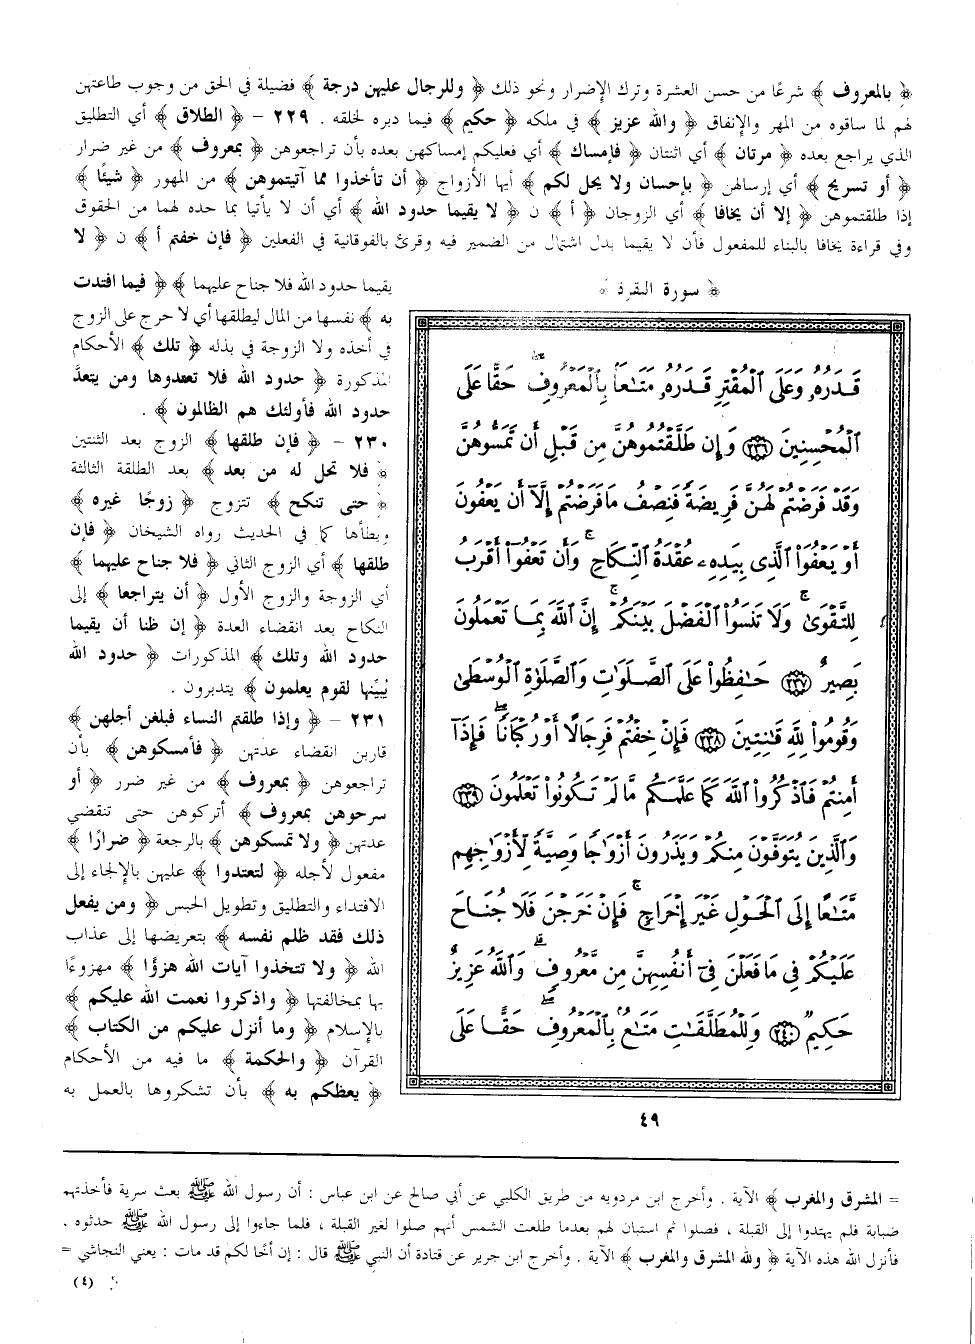 ﴿ بالمعروف ﴾ شرعًا من حسن العشرة وترك الإضرار ونحو ذلك ﴿ وللرجال عليهن درجة ﴾ فضيلة في الحق من وجوب طاعتهن
لهم لما ساقوه من المهر والإنفاق ﴿ والله عزيز ﴾ في ملكه ﴿ حكيم ﴾ فيما دبره لخلقه . ٢٢٩ - ﴿ الطلاق ﴾ أي التطليق
الذي يراجع بعده ﴿ مرتان ﴾ أي اثنتان ﴿ فإمساك ﴾ أي فعليكم إمساكهن بعده بأن تراجعوهن ﴿ بمعروف ﴾ من غير ضرار
﴿ أو تسريح ﴾ أي إرسالهن ﴿ بإحسان ولا يحل لكم ﴾ أيها الأزواج ﴿ أن تأخذوا مما آتيتموهن ﴾ من المهور ﴿ شيئًا ﴾
إذا طلقتموهن ﴿ إلا أن يخافا ﴾ أي الزوجان ﴿ أ ﴾ ن ﴿ لا يقيما حدود الله ﴾ أي أن لا يأتيا بما حده لهما من الحقوق
وفي قراءة يخافا بالبناء للمفعول فأن لا يقيما بدل اشتمال من الضمير فيه وقرئ بالفوقانية في الفعلين ﴿ فإن خفتم أ ﴾ ن ﴿ لا
يقيما حدود الله فلا جناح عليهما ﴾ ﴿ فيما افتدت
به ﴾ نفسها من المال ليطلقها أي لا حرج على الزوج
في أخذه ولا الزوجة في بذله ﴿ تلك ﴾ الأحكام
المذكورة ﴿ حدود الله فلا تعتدوها ومن يتعدَّ
حدود الله فأولئك هم الظالمون ﴾ .
٢٣٠ - ﴿ فإن طلقها ﴾ الزوج بعد الثنتين
﴿ فلا تحل له من بعد ﴾ بعد الطلقة الثالثة
﴿ حتى تنكح ﴾ تتزوج ﴿ زوجًا غيره ﴾
ويطأها كما في الحديث رواه الشيخان ﴿ فإن
طلقها ﴾ أي الزوج الثاني ﴿ فلا جناح عليهما ﴾
أي الزوجة والزوج الأول ﴿ أن يتراجعا ﴾ إلى
النكاح بعد انقضاء العدة ﴿ إن ظنا أن يقيما
حدود الله وتلك ﴾ المذكورات ﴿ حدود الله
يُبيّنها لقوم يعلمون ﴾ يتدبرون .
٢٣١ - ﴿ وإذا طلقتم النساء فبلغن أجلهن ﴾
قاربن انقضاء عدتهن ﴿ فأمسكوهن ﴾ بأن
تراجعوهن ﴿ بمعروف ﴾ من غير ضرر ﴿ أو
سرحوهن بمعروف ﴾ أتركوهن حتى تنقضي
عدتهن ﴿ ولا تمسكوهن ﴾ بالرجعة ﴿ ضرارًا ﴾
مفعول لأجله ﴿ لتعتدوا ﴾ عليهن بالإلجاء إلى
الافتداء والتطليق وتطويل الحبس ﴿ ومن يفعل
ذلك فقد ظلم نفسه ﴾ بتعريضها إلى عذاب
الله ﴿ ولا تتخذوا آيات الله هزؤًا ﴾ مهزوءًا
بها بمخالفتها ﴿ واذكروا نعمت الله عليكم ﴾
بالإسلام ﴿ وما أنزل عليكم من الكتاب ﴾
القرآن ﴿ والحكمة ﴾ ما فيه من الأحكام
﴿ يعظكم به ﴾ بأن تشكروها بالعمل به
﴿ سورة البقرة ﴾
قَدَرُهُۥ وَعَلَى ٱلْمُقْتِرِ قَدَرُهُۥ مَتَٰعًۢا بِٱلْمَعْرُوفِۖ حَقًّا عَلَى
ٱلْمُحْسِنِينَ ﴿٢٣٦﴾ وَإِن طَلَّقْتُمُوهُنَّ مِن قَبْلِ أَن تَمَسُّوهُنَّ
وَقَدْ فَرَضْتُمْ لَهُنَّ فَرِيضَةً فَنِصْفُ مَا فَرَضْتُمْ إِلَّآ أَن يَعْفُونَ
أَوْ يَعْفُوَا۟ ٱلَّذِى بِيَدِهِۦ عُقْدَةُ ٱلنِّكَاحِۚ وَأَن تَعْفُوٓا۟ أَقْرَبُ
لِلتَّقْوَىٰۚ وَلَا تَنسَوُا۟ ٱلْفَضْلَ بَيْنَكُمْۚ إِنَّ ٱللَّهَ بِمَا تَعْمَلُونَ
بَصِيرٌ ﴿٢٣٧﴾ حَٰفِظُوا۟ عَلَى ٱلصَّلَوَٰتِ وَٱلصَّلَوٰةِ ٱلْوُسْطَىٰ
وَقُومُوا۟ لِلَّهِ قَٰنِتِينَ ﴿٢٣٨﴾ فَإِنْ خِفْتُمْ فَرِجَالًا أَوْ رُكْبَانًاۖ فَإِذَآ
أَمِنتُمْ فَٱذْكُرُوا۟ ٱللَّهَ كَمَا عَلَّمَكُم مَّا لَمْ تَكُونُوا۟ تَعْلَمُونَ ﴿٢٣٩﴾
وَٱلَّذِينَ يُتَوَفَّوْنَ مِنكُمْ وَيَذَرُونَ أَزْوَٰجًا وَصِيَّةً لِّأَزْوَٰجِهِم
مَّتَٰعًا إِلَى ٱلْحَوْلِ غَيْرَ إِخْرَاجٍۚ فَإِنْ خَرَجْنَ فَلَا جُنَاحَ
عَلَيْكُمْ فِى مَا فَعَلْنَ فِىٓ أَنفُسِهِنَّ مِن مَّعْرُوفٍۗ وَٱللَّهُ عَزِيزٌ
حَكِيمٌ ﴿٢٤٠﴾ وَلِلْمُطَلَّقَٰتِ مَتَٰعٌۢ بِٱلْمَعْرُوفِۖ حَقًّا عَلَى
٤٩
= المشرق والمغرب ﴾ الآية . وأخرج ابن مردويه من طريق الكلبي عن أبي صالح عن ابن عباس : أن رسول الله ﷺ بعث سرية فأخذتهم
ضبابة فلم يهتدوا إلى القبلة ، فصلوا ثم استبان لهم بعدما طلعت الشمس أنهم صلوا لغير القبلة ، فلما جاءوا إلى رسول الله ﷺ حدثوه .
فأنزل الله هذه الآية ﴿ ولله المشرق والمغرب ﴾ الآية . وأخرج ابن جرير عن قتادة أن النبي ﷺ قال : إن أخًا لكم قد مات : يعني النجاشي =
(٤)